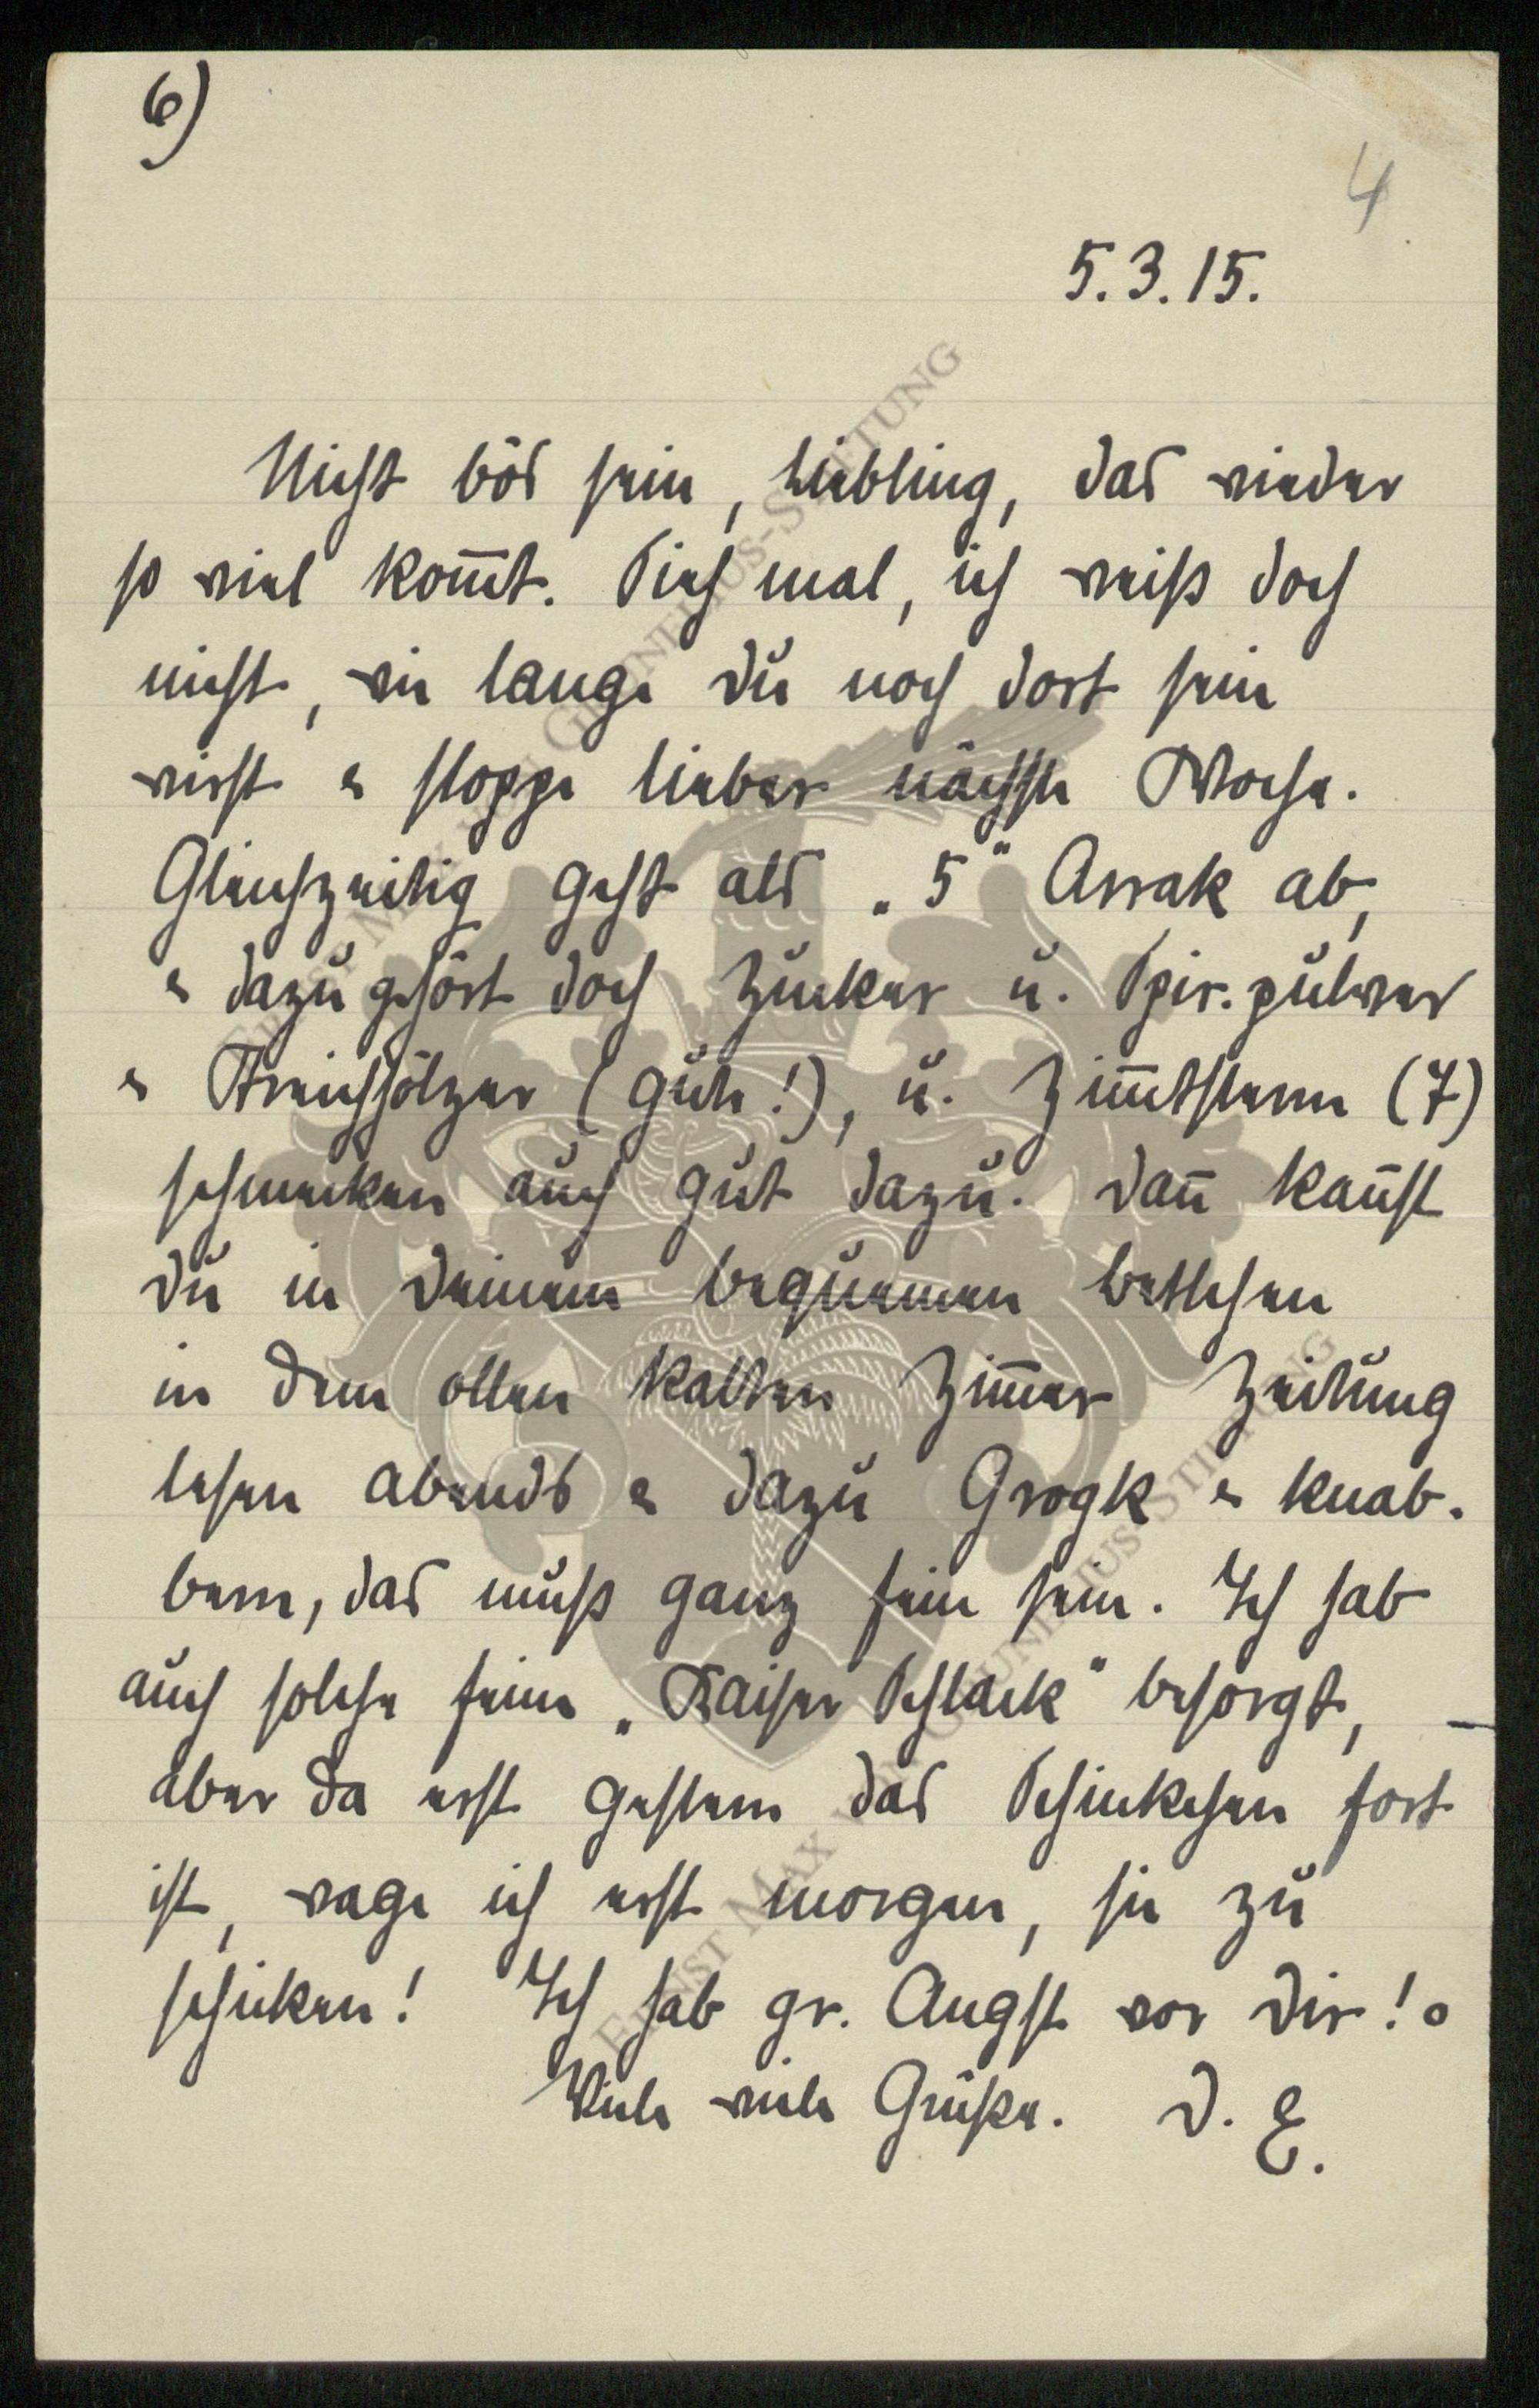 6)
4
5.3.15.
Nicht bös sein, Liebling, das wieder
so viel kom̅t. Sieh mal, ich weiß doch
nicht, wie lange du noch dort sein
wirst & stoppe lieber nächste Woche.
Gleichzeitig geht als „5" Arrak ab,
& dazu gehört doch Zucker u. Spir.pulver
& Streichhölzer (gute!), u. Zim̅tsterne (7)
schmecken auch gut dazu. Dan̅ kan̅st
du in deinem bequemen Bettchen
in dem ollen kalten Zim̅er Zeitung
lesen abends & dazu Grogk & knab-
bern, das muß ganz fein sein. Ich hab
auch solche feine „Kaiser Schlack" besorgt, –
aber da erst gestern das Schinkchen fort
ist, wage ich erst morgen, sie zu
schicken! Ich hab gr. Angst vor dir!
Viele viele Grüße. D. E.
ERNST MAX VON GRUNELIUS-STIFTUNG
ERNST MAX VON GRUNELIUS-STIFTUNG